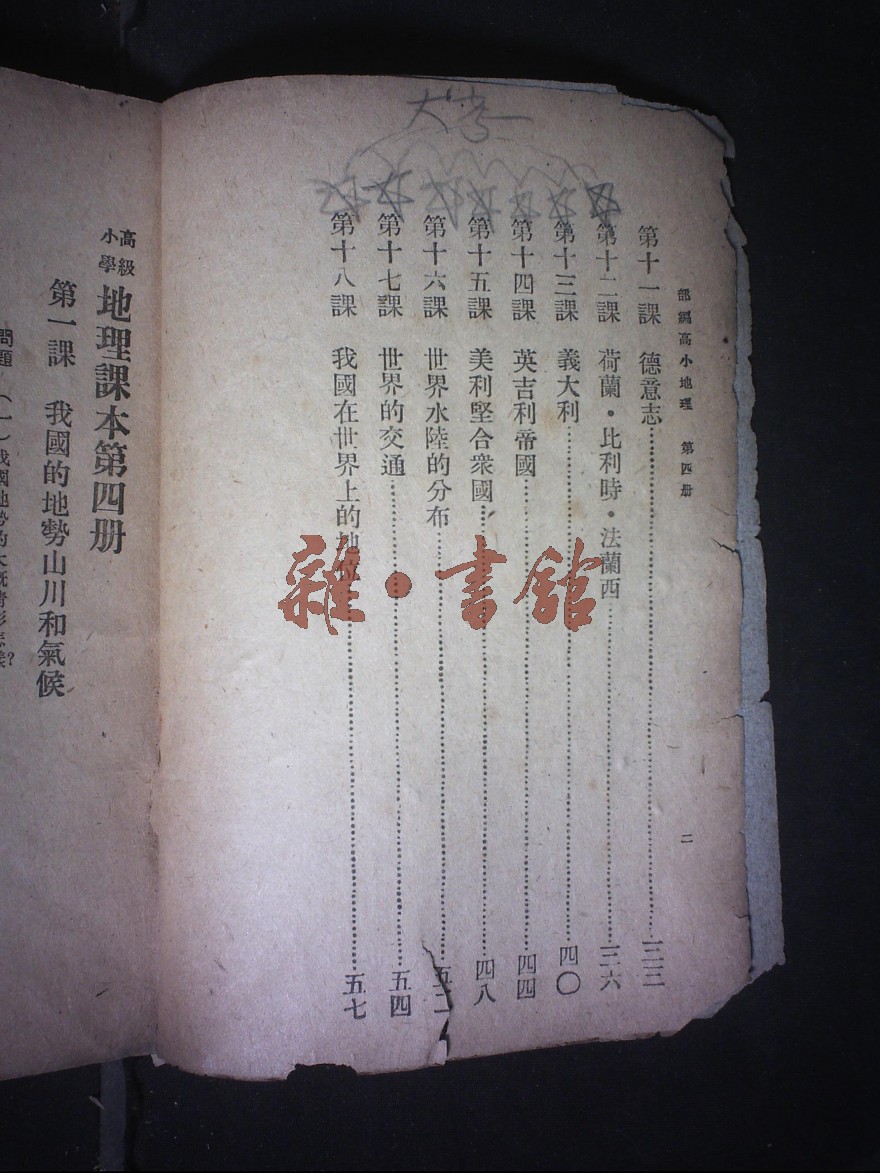 大考
部編高小地理 第四册
二
第十一課 德意志……三三
第十二課 荷蘭・比利時・法蘭西……三六
第十三課 義大利……四〇
第十四課 英吉利帝國……四四
第十五課 美利堅合衆國……四八
第十六課 世界水陸的分布……五二
第十七課 世界的交通……五四
第十八課 我國在世界上的地位……五七
雜・書館
高級小學 地理課本第四册
第一課 我國的地勢山川和氣候
問題 (一)我國地勢的大概情形怎樣?